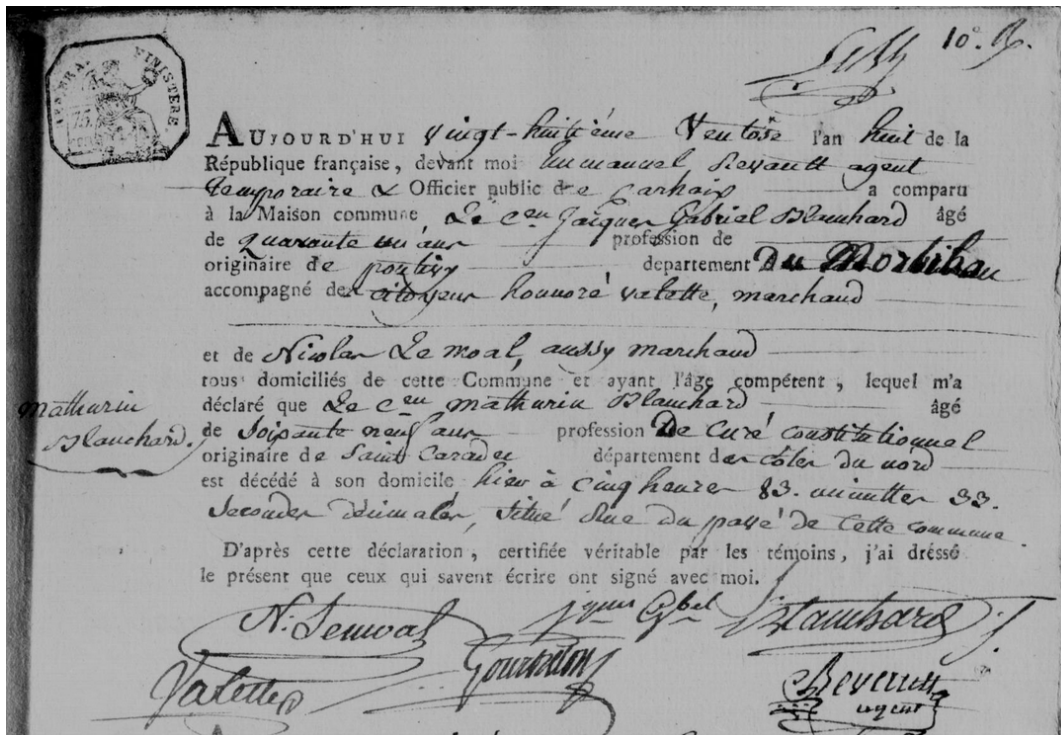 10e
FINISTERE.
AUJOURD'HUI vingt-huitième Ventose l'an huit de la
République française, devant moi Emmanuel agent
temporaire & Officier public de carhaix a comparu
à la Maison commune Le cen Jacques Gabriel Blanchard âgé
de quarante un ans profession de
originaire de pontivy departement Du Morbihan
accompagné des citoyens honnoré valette, marchand
et de Nicolas Le moal, aussy marchand
tous domiciliés de cette Commune et ayant l'âge compétent, lequel m'a
déclaré que Le cen mathurin Blanchard âgé
mathurin
Blanchard.
de soixante neuf ans profession De Curé constitutionnel
originaire de Saint Caradec département des côtes du nord
est décédé à son domicile hier à cinq heures 83. minuttes 33.
secondes décimales, situé Rue du pavé de cette commune.
D'après cette déclaration, certifiée véritable par les témoins, j'ai dressé
le présent que ceux qui savent écrire ont signé avec moi.
jques Gbel Blanchard
N. Lemoal
Valette
agent